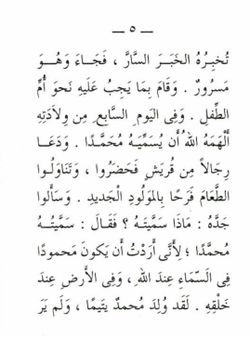 — ٥ —
تُخبِرُهُ الخَبَرَ السَّارَّ ، فَجَاءَ وَهُــوَ
مَسرُورٌ . وَقَامَ بِمَا يَجِبُ عَلَيهِ نَحوَ أُمِّ
الطِّفلِ . وَفِى اليَومِ السَّابِعِ مِن وِلَادَتِهِ
أَلهَمَهُ اللهُ أَن يُسَمِّيَهُ مُحَمَّدًا . وَدَعَـا
رِجَالاً مِن قُرَيشٍ فَحَضَرُوا ، وَتَنَاوَلُوا
الطَّعَامَ فَرَحًا بِالمَولُودِ الجَدِيدِ . وَسَأَلُوا
جَدَّهُ : مَاذَا سَمَّيتَهُ ؟ فَقَالَ : سَمَّيتُــهُ
مُحَمَّدًا ؛ لِأَنِّى أَرَدْتُ أَن يَكُونَ مَحمودًا
فِى السَّمَاءِ عِندَ اللهِ ، وَفِى الأَرضِ عِندَ
خَلقِهِ . لَقَد وُلِدَ مُحمدٌ يَتِيمًا ، وَلَم يَرَ